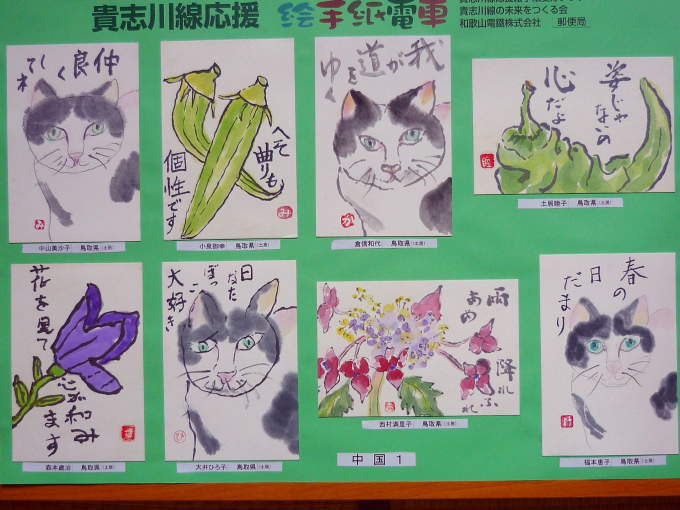 貴志川線応援 絵手紙電車
貴志川線の未来をつくる会
和歌山電鐵株式会社 郵便局
仲良く
してネ
み
中山美沙子 鳥取県(土居)
へそ
曲りも
個性です
み
鳥取県(土居)
我が道を
ゆく
か
倉信和代 鳥取県(土居)
姿じゃ
ないの
心だよ
土居睦子 鳥取県(土居)
花を見て
心が和み
ます
す
鳥取県(土居)
日なた
ぼっこ
大好き
ひ
大井ひろ子 鳥取県(土居)
雨あめ
降れふれ
西村満里子 鳥取県(土居)
春の
日
だまり
福本恵子 鳥取県(土居)
中国 1